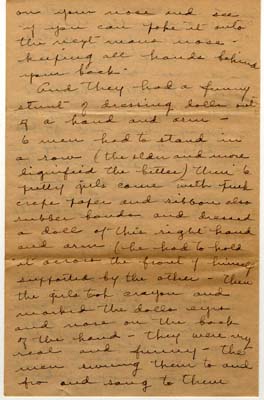 on your nose and see
if you can poke it into
the next mans nose
keeping all hands behind
your back.
And they had a funny
stunt of dressing dolls out
of a hand and arm -
6 men had to stand in
a row (the older and more
dignified the better) then 6
pretty girls came with pink
crepe paper and ribbon also
rubber bands and dressed
a doll of this right hand
and arm (he had to hold
it across the front of himself
supported by the other - then
the girls took crayon and
marked the dolls eyes
and nose on the back
of the hand - they were very
real and funny - the
men swung them to and
fro and sang to them